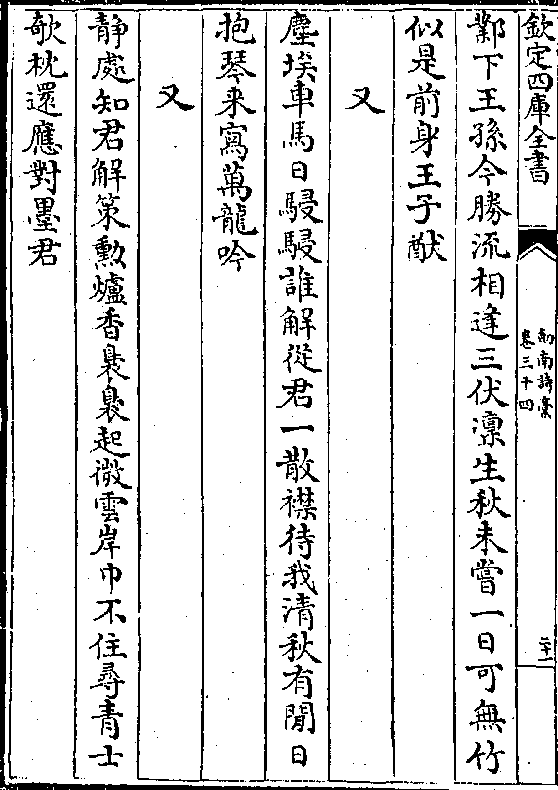 欽定四庫全書
剣南詩槀
卷三十四
二十一
鄴下王孫今勝流相逢三伏凛生秋未嘗一日可無竹
似是前身王子猷
又
塵埃車馬日駸駸誰解從君一散襟待我清秋有閒日
抱琴来寫萬龍吟
又
静處知君解策勲爐香裊裊起微雲岸巾不住尋青士
欹枕還應對墨君